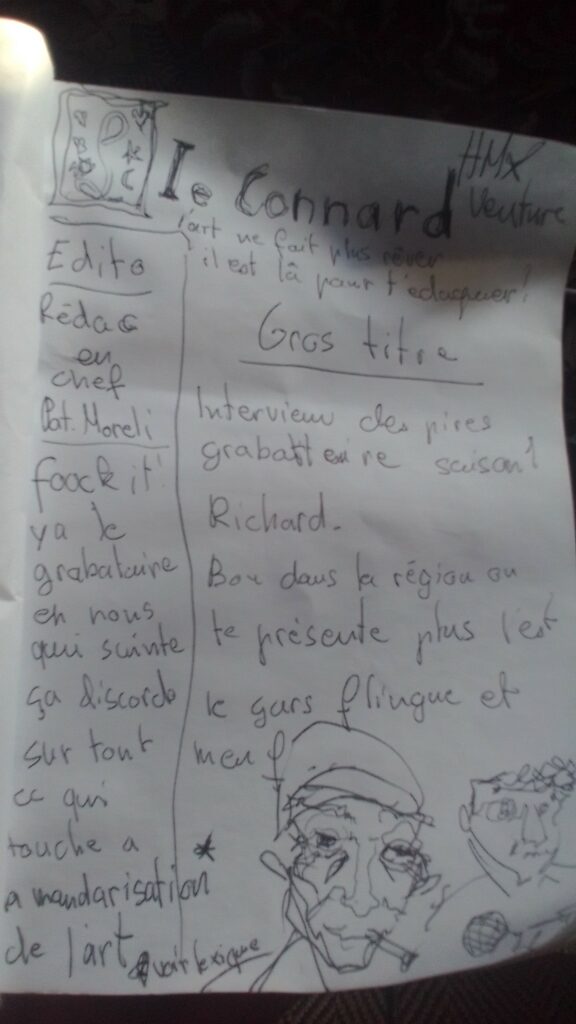 Le Connard
HMX
Venture
l'art ne fait plus rêver
il est là pour t'éduquer!
Edito
Rédac
en
chef
Pat. Moreli
foock it!
ya le
grabataire
en nous
qui suinte
ça discorde
sur tout
ce qui
touche a
a mandarisation *
de l'art
voir lexique
Gros titre
Interview des pires
grabattaire saison 1
Richard.
Bon dans la région on
te présente plus l'est
le gars flingue et
meuf